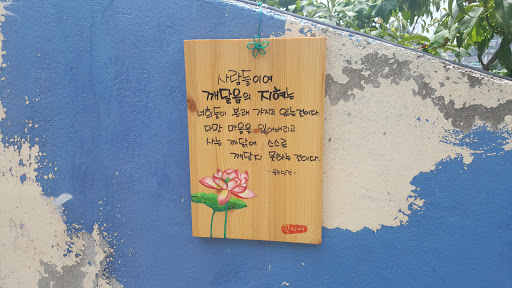 사람들이여
깨달음의 지혜는
너희들이 본래 가지고 있는것이다
다만 마음을 잃어버리고
사는 까닭에 스스로
깨닫지 못하는 것이다.